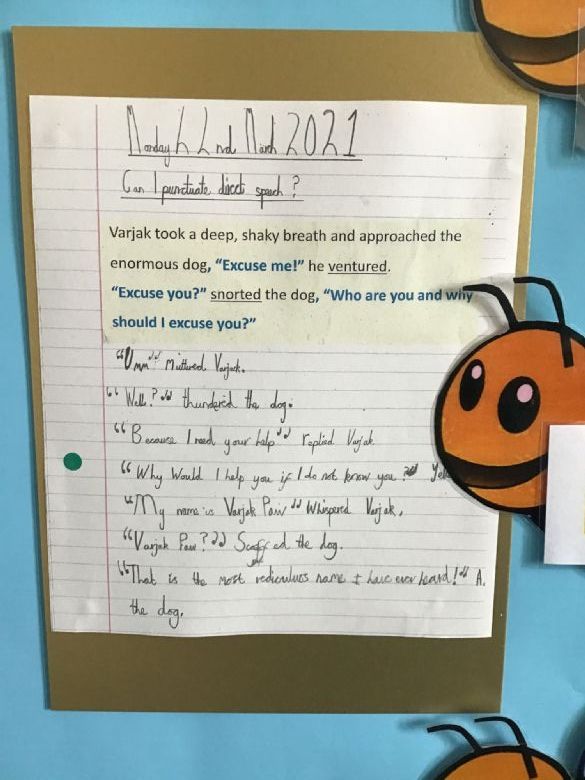 Monday 22nd March 2021
Can I punctuate direct speech?
Varjak took a deep, shaky breath and approached the
enormous dog, “Excuse me!” he ventured.
“Excuse you?” snorted the dog, “Who are you and why
should I excuse you?”
“Umm” Muttured Varjak.
“Well?” thundered the dog.
“Because I need your help” replied Varjak
“Why Would I help you if I do not know you?”
“My name is Varjak Paw” Whispered Varjak,
“Varjak Paw?” Scoffed the dog.
“That is the most rediculues name I have ever heard!”
the dog,